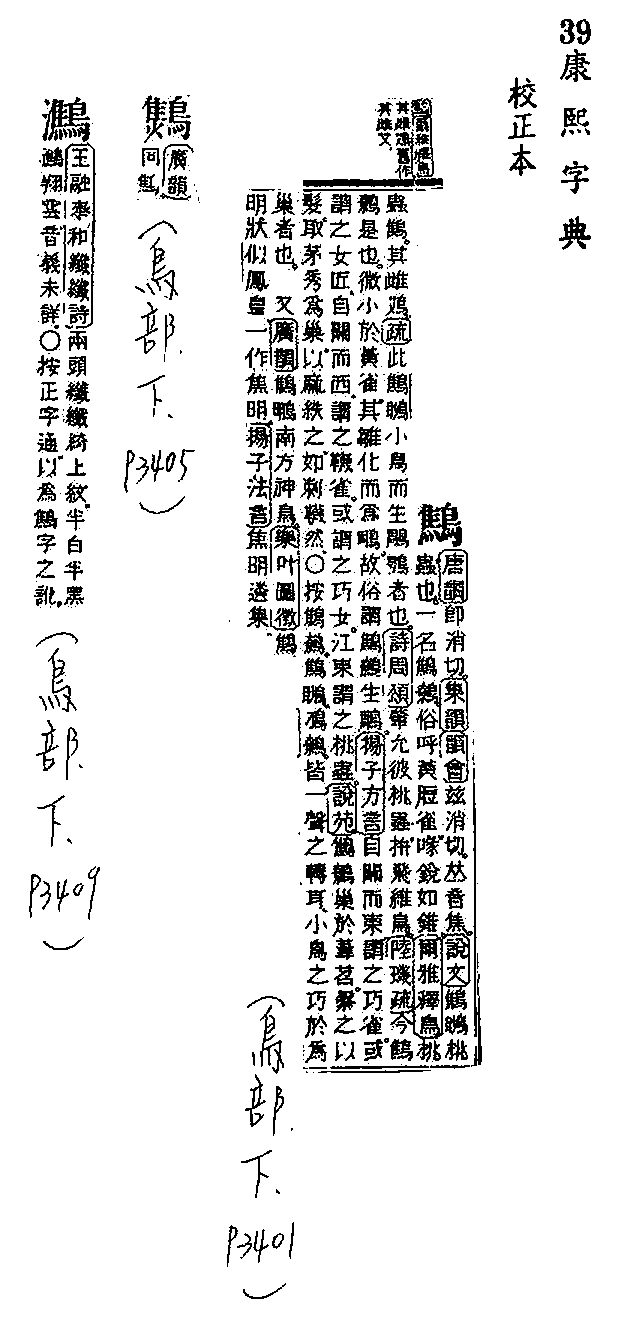 39
康熙字典
校正本
鷦
唐韻卽消切集韻韻會兹消切𠀤音焦說文鷦䳟桃
蟲也一名鷦鷯俗呼黃脰雀喙銳如錐爾雅釋鳥桃
蟲鷦其雌鴱疏此鷦䳟小鳥而生鵰鶚者也詩周頌肇允彼桃蟲拚飛維鳥陸璣疏今鷦
鷯是也微小於黃雀其雛化而爲鵰故俗謂鷦鷯生鵰揚子方言自關而東謂之巧雀或
謂之女匠自關而西謂之韈雀或謂之巧女江東謂之桃蟲說苑鷦鷯巢於葦苕繫之以
髮取茅秀爲巢以麻紩之如刺襪然○按鷦鷯鷦䳟皆一聲之轉耳小鳥之巧於爲
巢者也 又廣韻鷦䳟南方神鳥樂叶圖徵鷦
明狀似鳳皇一作焦明揚子法言焦明遴集
廣韻
同
(鳥部.下、P3401)
(鳥部.下、P3405)
王融奉和纖纖詩兩頭纖纖綺上紋半白半黑
鷦翔雲音義未詳○按正字通以爲鷦字之訛
(鳥部.下、P3409)